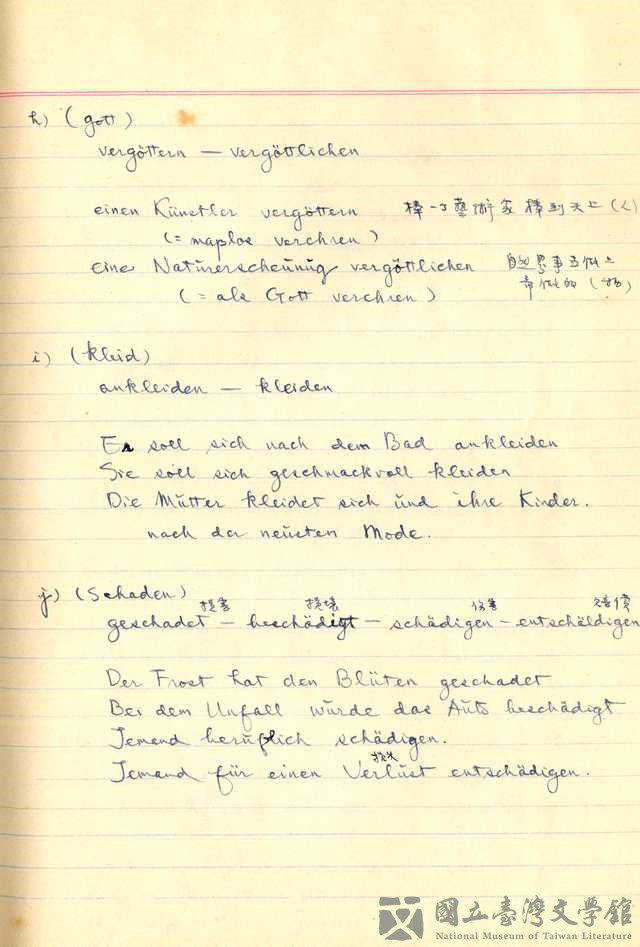 h) (gott)
vergöttern — vergöttlichen
einen Künstler vergöttern 捧一個藝術家捧到天上(人)
(= maplos verehren)
eine Naturerscheinung vergöttlichen 自然界事
(= als Gott verehren)
i) (kleid)
ankleiden — kleiden
Er soll sich nach dem Bad ankleiden
Sie soll sich geschmackvoll kleiden
Die Mutter kleidet sich und ihre Kinder.
nach der neusten Mode.
j) (Schaden)
損害 損壞 傷害 賠償
geschadet — beschädigt — schädigen — entschädigen
Der Frost hat den Blüten geschadet
Bei dem Unfall wurde das Auto beschädigt
Jemand beruflich schädigen.
損失
Jemand für einen Verlust entschädigen.
國立臺灣文學館
National Museum of Taiwan Literature